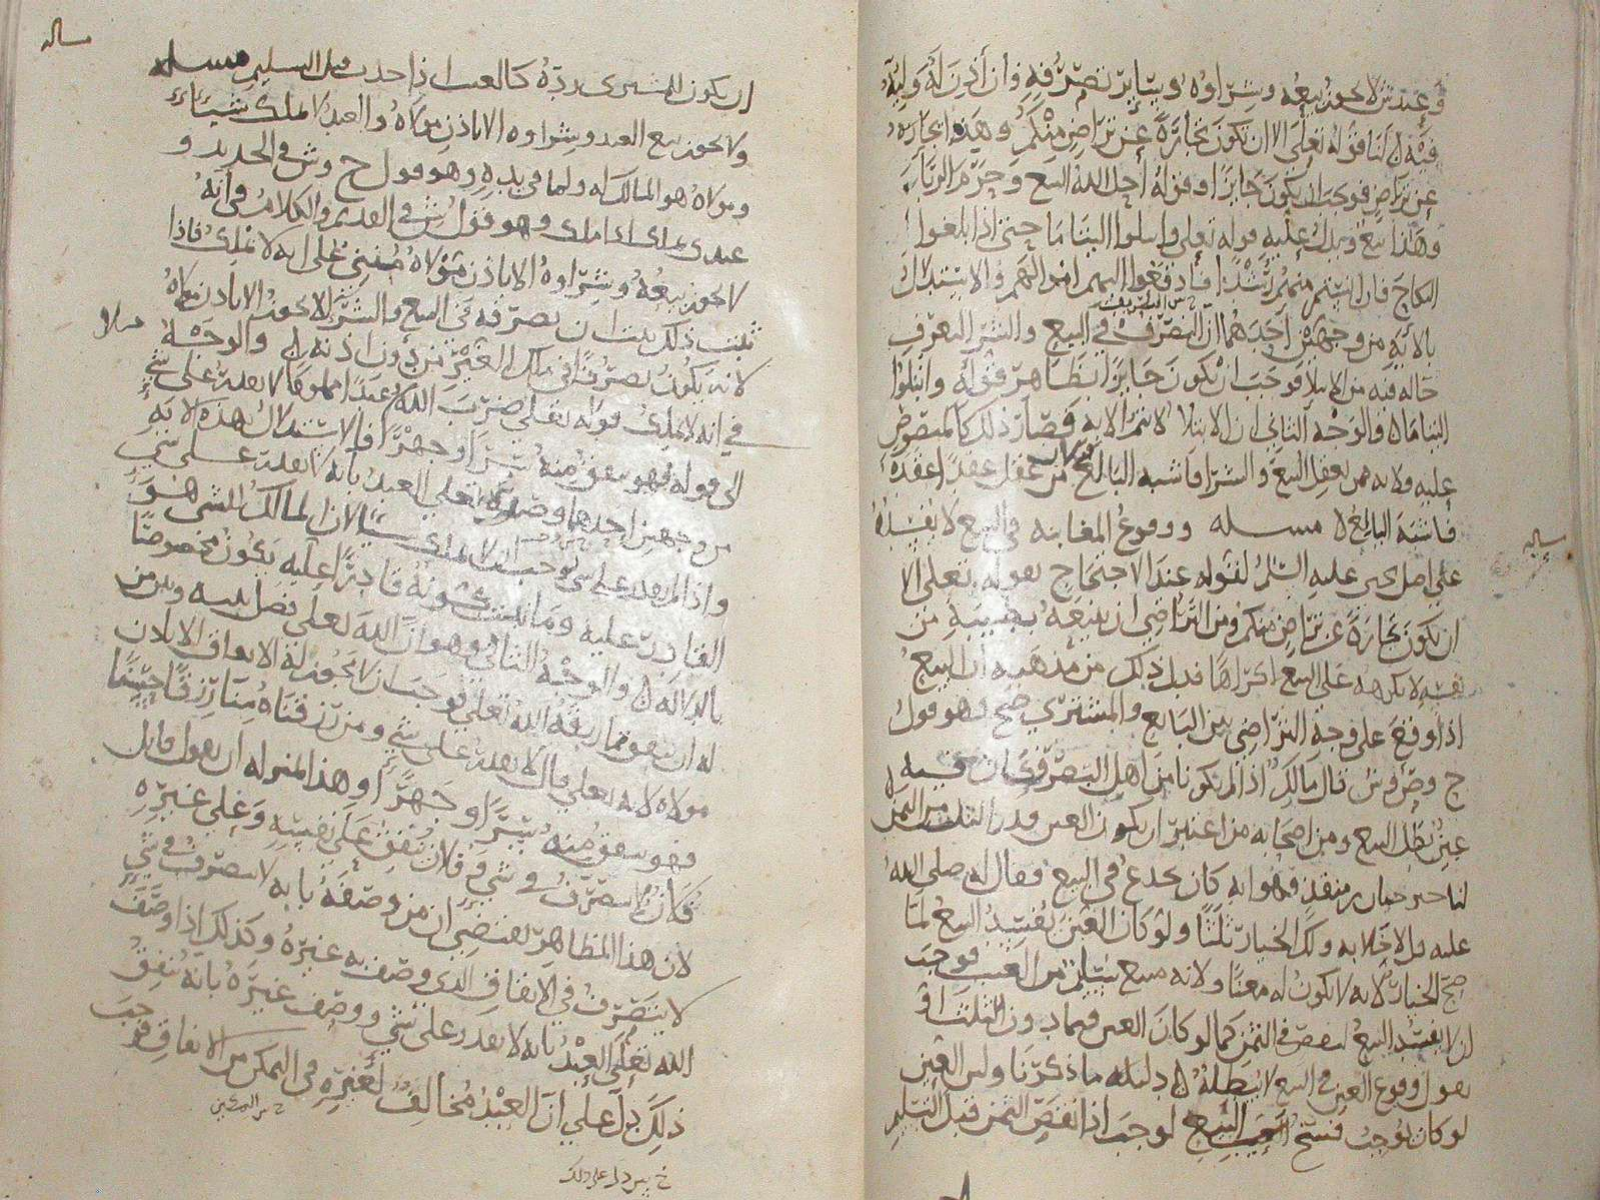 وعند ش لا يجوز بيعه وشراوه وسائر تصرفه وان أذن له وليه
فيه لنا قوله تعلى الا ان تكون تجارة عن تراض منكم وهذه تجارة
عن تراض فوجب ان يكون جايزا وقوله أحل الله البيع وحرم الربا
وهذا بيع ويدل عليه قوله تعلى وابتلوا اليتاما حتى اذا بلغوا
النكاح فان انستم منهم رشدا فادفعوا اليهم اموالهم والاستدلال
بالأية من وجهين أحدهما ان التصرف في البيع والشرا لتعرف
حاله فيه من الابتلا فوجب ان يكون جايزا بظاهر قوله وابتلوا
اليتاما والوجه الثاني ان الابتلا لا يتم الا به فصار ذلك كالمنصوص
عليه ولانه ممن يعقل البيع والشرا فاشبه البالغ من عقل عقدا عقده
فاشبه البالغ مسله ووقوع المغابنة في البيع لا يفسده
على اصل يحيى عليه السلم لقوله عند الاحتجاج بقوله تعلى الا
ان تكون تجارة عن تراض منكم ومن التراضي ان يبيعه بطيبة من
نفسه لا يكرهه على البيع اكراها فدل ذلك من مذهبه ان البيع
اذا وقع على وجه التراضي بين البايع والمشتري صح وهو قول
ح وص وش قال مالك اذا لم يكونا من اهل البصر وكان فيه
غبن بطل البيع ومن اصحابه من اعتبر ان يكون الغبن قدر الثلث من الثمن
لنا خبر حبان بن منقذ وهو انه كان يخدع في البيع فقال له صلى الله
عليه قل لا خلابه ولك الخيار ثلثا ولو كان الغبن يفسد البيع لما
صح الخيار لانه لا يكون له معنا ولانه مبيع سليم من العيب فوجب
ان لا يفسد البيع لنقص في الثمن كما لو كان الغبن فيما دون الثلث او
نقول وقوع الغبن في البيع لا يبطله دليله ما ذكرنا وليس الغبن
لو كان يوجب فسخ البيع لوجب اذا نقص الثمن قبل التسليم
مساله
مساله
ان يكون للمشتري رده كالعيب اذا حدث قبل التسليم مسله
ولا يجوز بيع العبد وشراوه الا باذن مولاه والعبد لا يملك شيئا
ومولاه هو المالك له ولما في يده وهو قول ح وش في الجديد و
عندي يملك اذا ملك وهو قول ش في القديم والكلام في أنه
لا يجوز بيعه وشراوه الا باذن مولاه مبني على انه لا يملك فاذا
ثبت ذلك ثبت ان تصرفه في البيع والشرا لا يجوز الا باذن مولاه
لانه يكون تصرفا في ملك الغير من دون اذنه والوجه
في انه لا يملك قوله تعلى ضرب الله مثلا عبدا مملوكا لا يقدر على شي
الى قوله فهو ينفق منه سرا وجهرا فالاستدلال بهذه الاية
من وجهين احدهما وصفه تعلى العبد بأنه لا يقدر على شي
واذا لم يقدر على شي وجب ان لا يملك شيا لان المالك للشي هو
القادر عليه وما يكونه قادرا عليه يكون مخصوصا
بالدلاله والوجه الثاني وهو ان الله تعلى فصل بينه وبين من
له ان ينفق مما رزقه الله تعلى فوجب ان لا يجوز له الانفاق الا باذن
مولاه لانه تعلى قال لا يقدر على شي ومن رزقناه منا رزقا حسنا
فهو ينفق منه سرا وجهرا وهذا بمنزله ان يقول قايل
فلان لا يتصرف في شي وفلان ينفق على نفسه وعلى غيره
لان هذا الظاهر يقتضي ان من وصفه بانه لا يتصرف في شي
لا يتصرف في الانفاق الذي وصف به غيره وكذلك اذا وصف
الله تعلى العبد بانه لا يقدر على شي ووصف غيره بأنه ينفق
ذلك دل على ان العبد مخالف لغيره في التمكن من الانفاق فوجب
مثلا